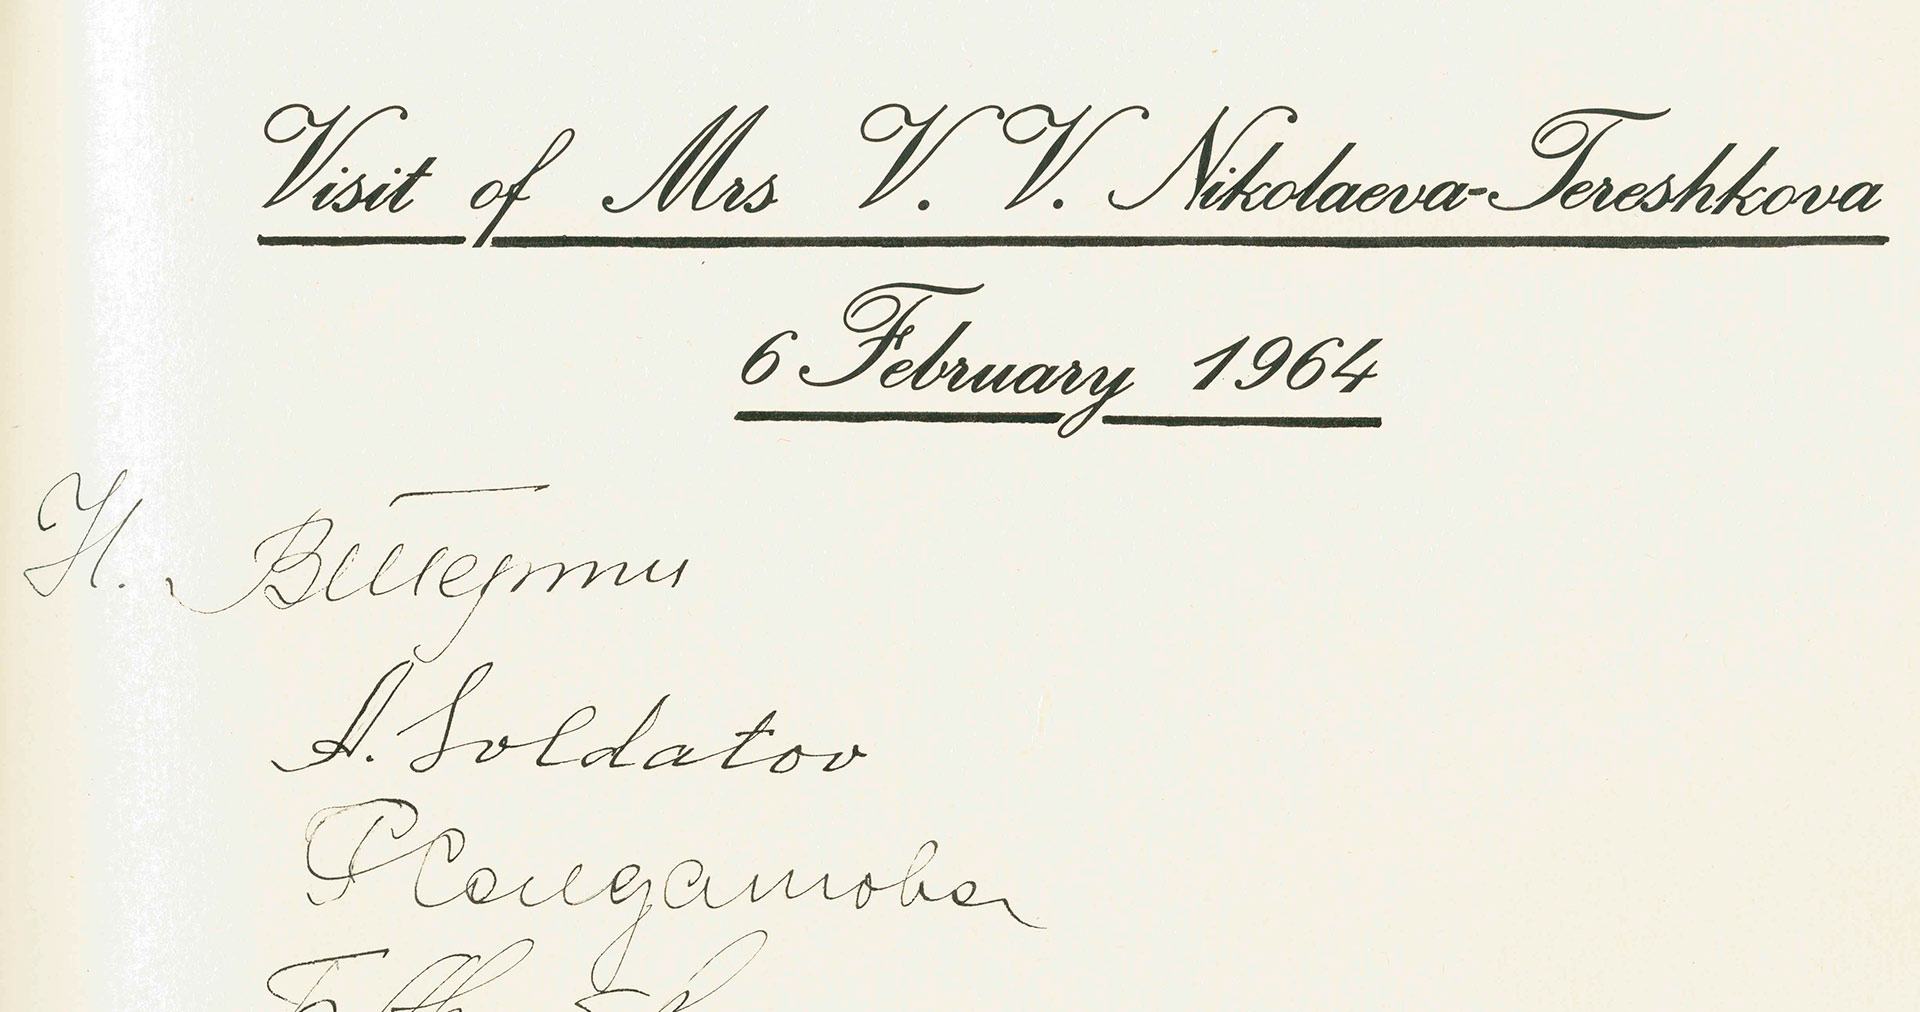 Visit of Mrs V. V. Nikolaeva-Tereshkova
6 February 1964
Н.
A. Soldatov
Р Солдатова